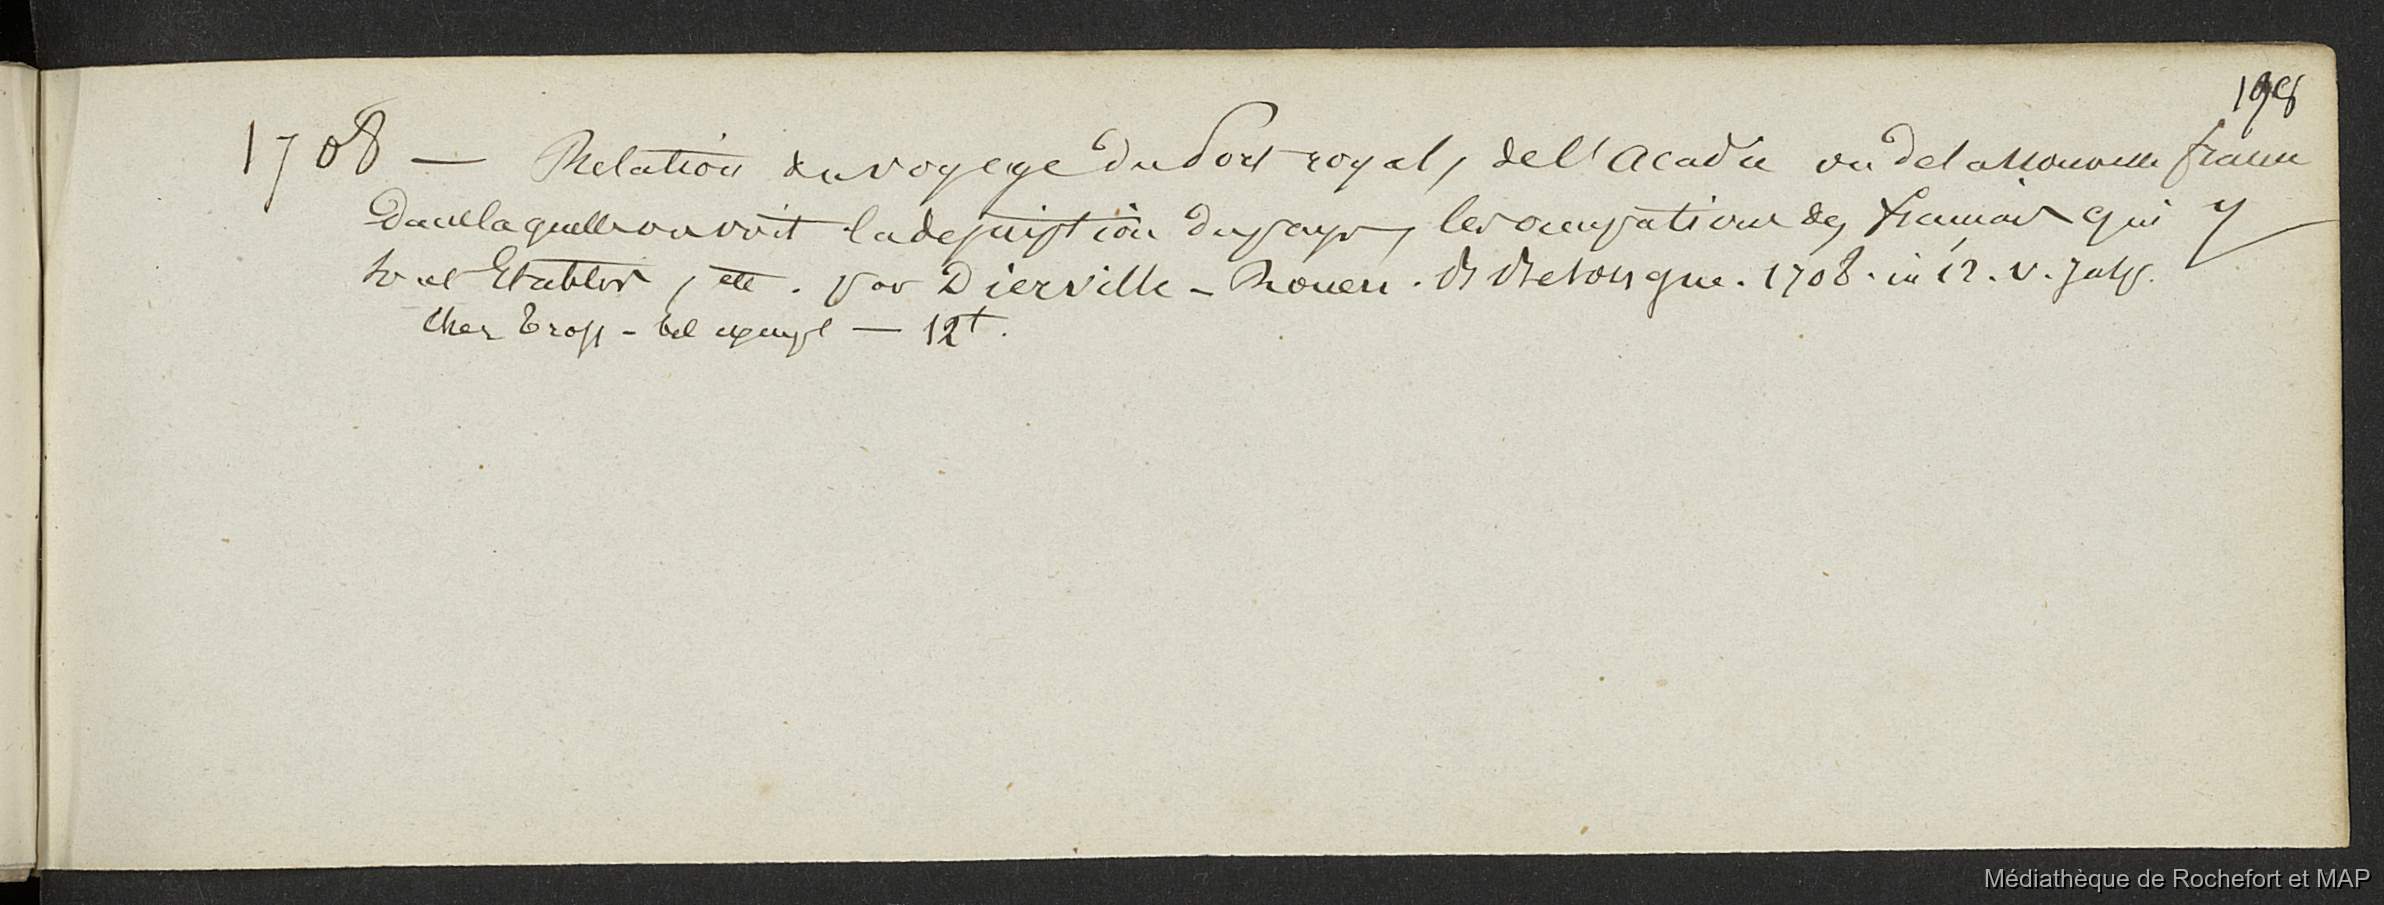 198
1708 — Relation du voyage du Port royal, de l'Acadie ou de la Nouvelle france
dans laquelle on voit la description du pays, les occupations des francais qui y
sont Etablis, etc. par Dierville - Rouen. 1708. in 12. v.
chez Tross - bel exempl — 12t.
Médiathèque de Rochefort et MAP